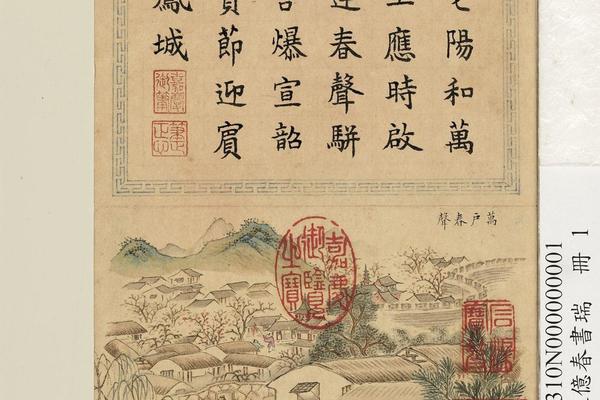 陽和萬
應時啟
春聲駢
爆宣韶
節迎賓
鳳城
嘉慶御筆
萬戶春聲
嘉慶御覽之寶
310N000000001
億春書瑞 冊 1